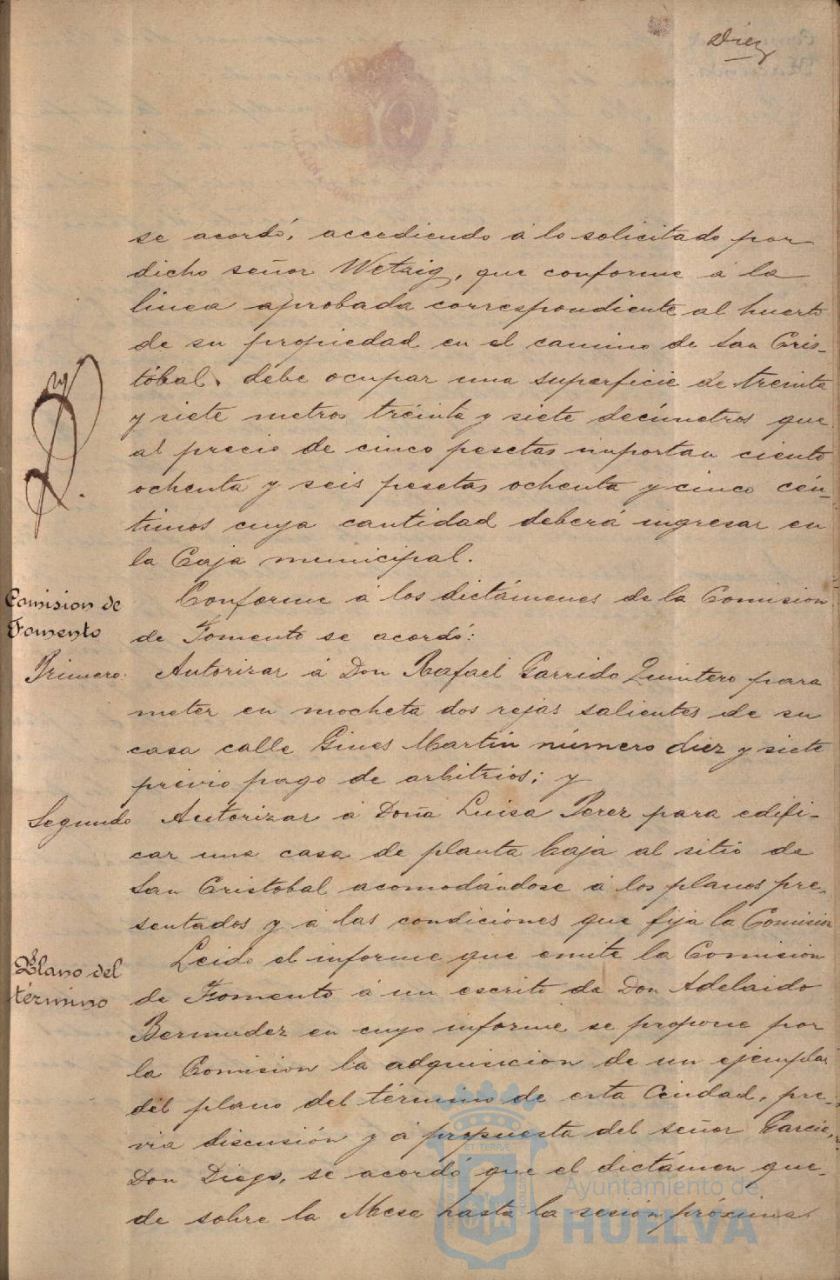 Diez
se acordó, accediendo á lo solicitado por
dicho señor Wetzig, que conforme á la
linea aprobada correspondiente al huerto
de su propiedad en el camino de San Cris-
tóbal, debe ocupar una superficie de treinta
y siete metros treinta y siete decímetros que
al precio de cinco pesetas importan ciento
ochenta y seis pesetas ochenta y cinco cén-
timos cuya cantidad deberá ingresar en
la Caja municipal.
Comision de Fomento
Conforme á los dictámenes de la Comision
de Fomento se acordó:
Primero. Autorizar á Don Rafael Garrido Quintero para
meter en mocheta dos rejas salientes de su
casa calle Gines Martin número diez y siete
previo pago de arbitrios; y
Segundo Autorizar á Doña Luisa Perez para edifi-
car una casa de planta baja al sitio de
San Cristobal acomodándose á los planos pre-
sentados y á las condiciones que fija la Comision
Plano del término
Leido el informe que emite la Comision
de Fomento á un escrito de Don Adelaido
Bermudez en cuyo informe se propone por
la Comision la adquisicion de un ejemplar
del plano del término de esta Ciudad, pre-
via discusión y á propuesta del señor Garcia,
Don Diego, se acordó que el dictámen que-
de sobre la Mesa hasta la sesion próxima
Ayuntamiento de
HUELVA